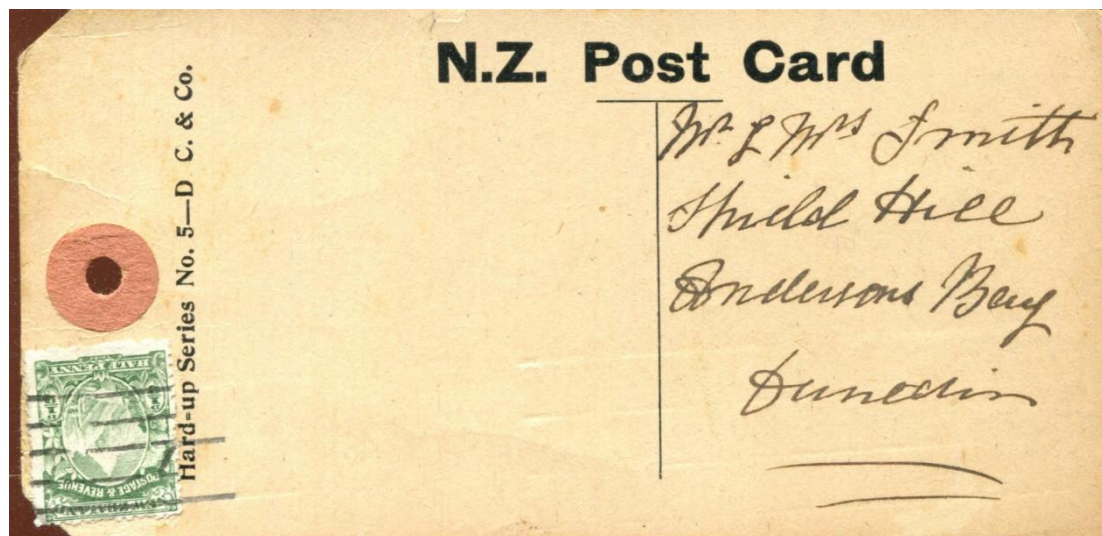 N.Z. Post Card
Hard-up Series No. 5—D C. & Co.
Mr & Mrs Smith
Shield Hill
Andersons Bay
Dunedin
HALF PENNY
POSTAGE & REVENUE
NEW ZEALAND